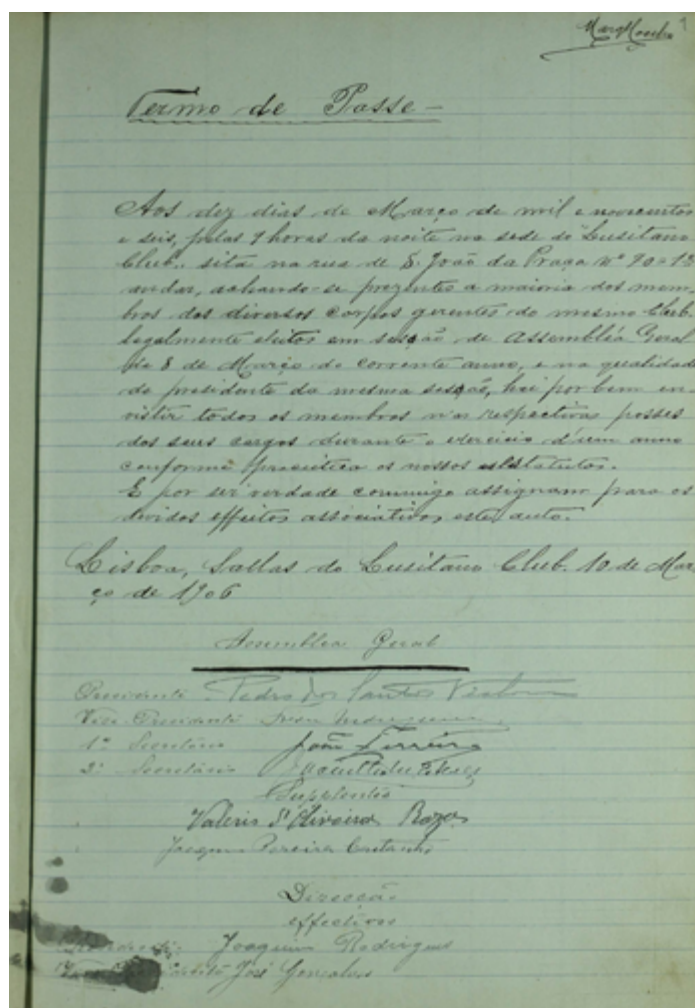 1
Termo de Posse -
Aos dez dias de Março de mil e novecentos
e seis, pelas 9 horas da noite na sede do Lusitano
Club. sita na rua de S. João da Praça nº 90=1º
andar, achando-se prezentes a maioria dos mem-
bros dos diversos corpos gerentes do mesmo Club.
legalmente eleitos em sessão de Assembléa Geral
de 8 de Março do corrente anno, e na qualidade
de presidente da mesma sessão, hei por bem en-
vistir todos os membros nas respectivas posses
dos seus cargos durante o exercicio d'um anno
conforme os nossos estatutos.
E por ser verdade commigo assignam para os
devidos effeitos associativos este auto.
Lisboa, Sallas do Lusitano Club. 10 de Mar
ço de 1906
Assemblea Geral
Presidente Pedro dos Santos
Vice-Presidente
1º Secretário João Ferreira
2º Secretário
Supplentes
Valerio d'Oliveira
Joaquim Pereira
Direcção
effectivos
Joaquim Rodrigues
José Gonçalves